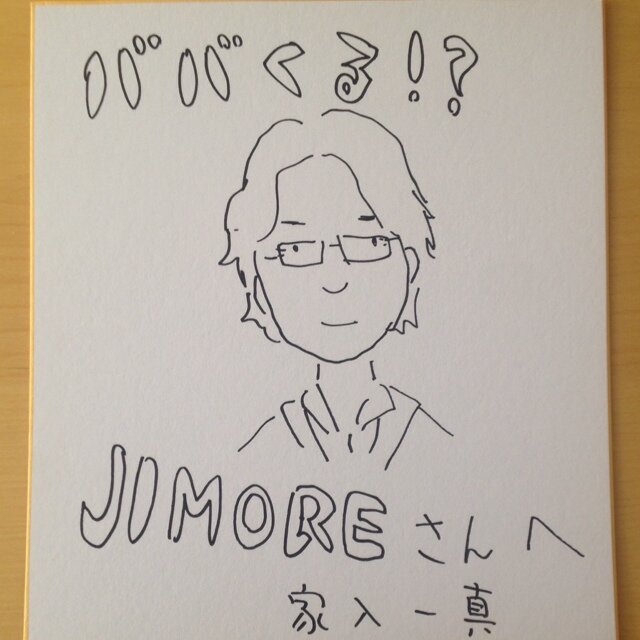 ババくる!?
JIMOREさんへ
家入一真